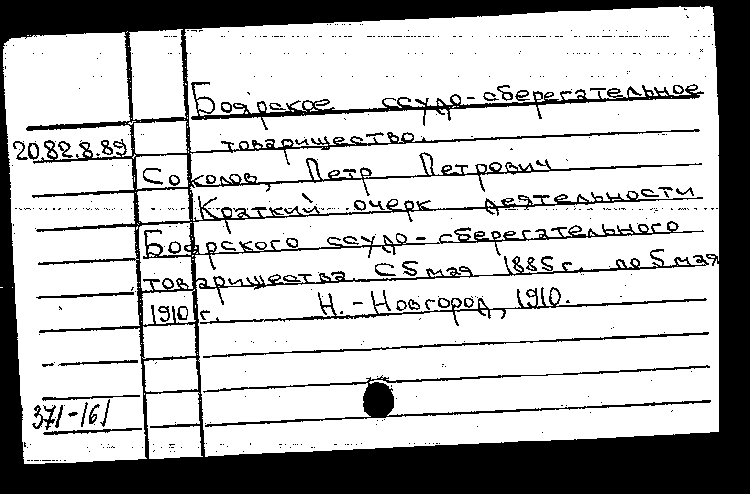 Боярское ссудо-сберегательное
20.82.8.89 товарищество.
Соколов, Петр Петрович
Краткий очерк деятельности
Боярского ссудо-сберегательного
товарищества с 5 мая 1885 г. по 5 мая
1910 г. Н.-Новгород, 1910.
371-161